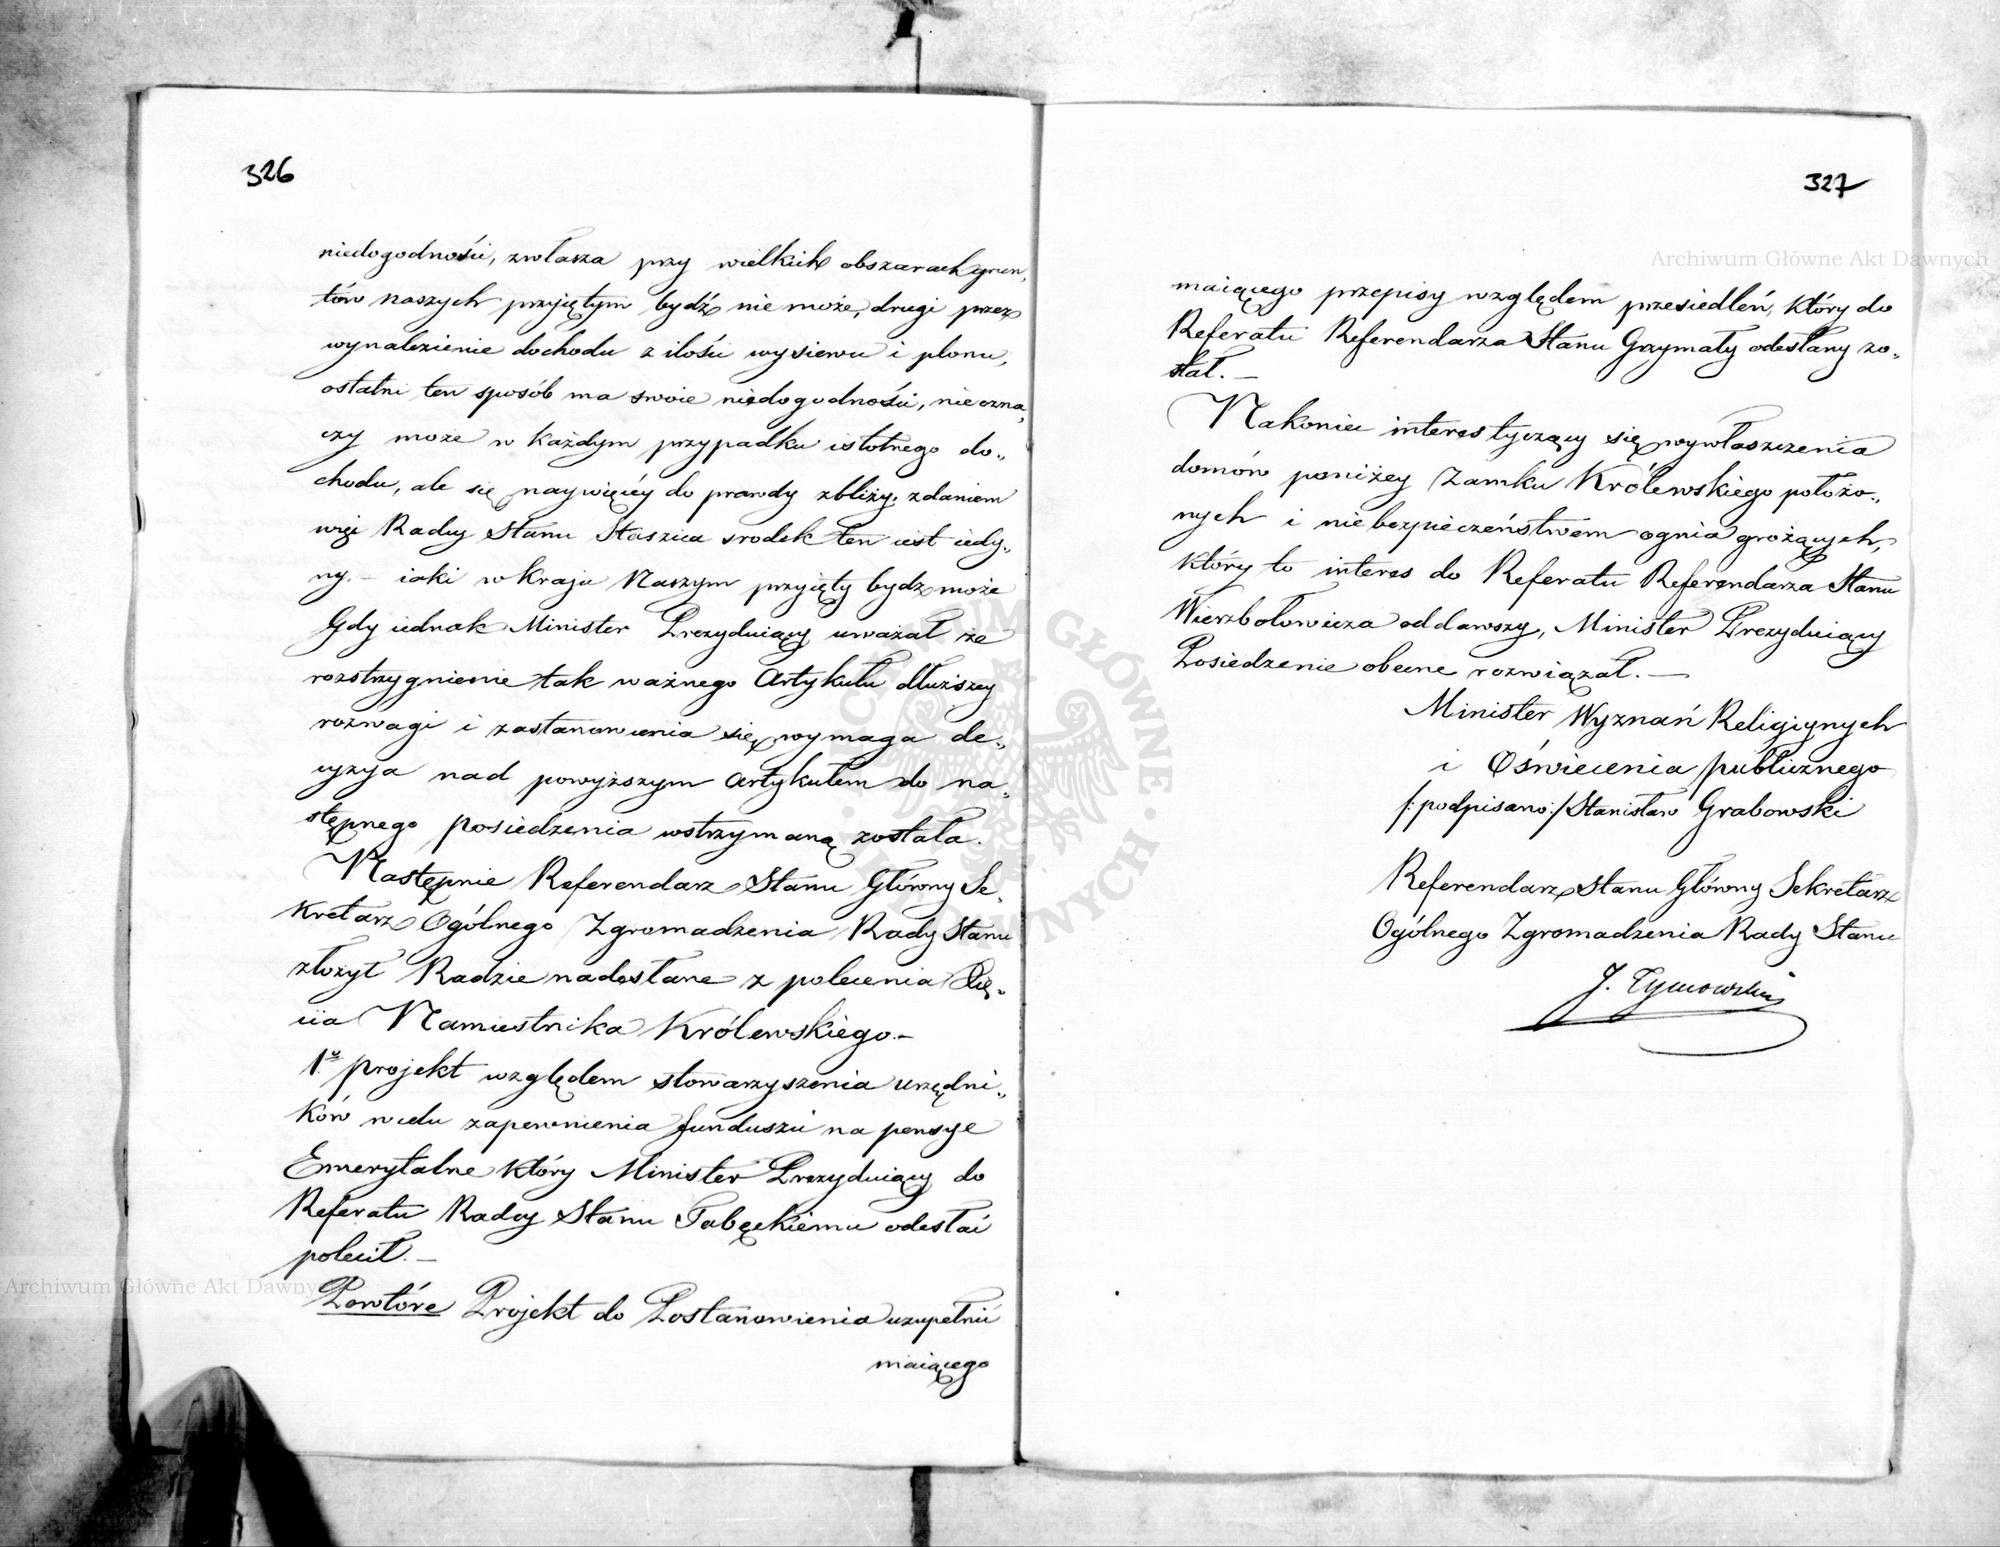 326
niedogodności, zwłasza przy wielkich obszarach grun„
tów naszych przyjętym bydź nie może, drugi przez
wynalezienie dochodu z ilości wysiewu i plonu,
ostatni ten sposób ma swoie niedogodności, nieozna„
czy może w każdym przypadku istotnego do„
chodu, ale się naywięcéy do prawdy zbliży, zdaniem
więc Radcy Stanu Staszica srodek ten iest iedy„
ny. – iaki w kraju Naszym przyięty bydz może
Gdy iednak Minister Prezyduiący uważał że
rozstrzygnienie tak ważnego Artykułu dłuższey
rozwagi i zastanowienia się wymaga de„
cyzya nad powyższym Artykułem do na„
stępnego posiedzenia wstrzymaną została.
Następnie Referendarz Stanu Główny Se„
kretarz Ogólnego Zgromadzenia Rady Stanu
złożył Radzie nadesłane z polecenia Xię„
cia Namiestnika Królewskiego.–
1.º projekt względem stowarzyszenia urzędni„
ków w celu zapewnienia funduszu na pensye
Emerytalne który Minister Prezyduiący do
Referatu Radcy Stanu Tabęckiemu odesłać
polecił. –
Powtóre Projekt do Postanowienia uzupełnić
maiącego
327
maiącego przepisy względem przesiedleń, który do
Referatu Referendarza Stanu Grzymały odesłany zo„
stał. –
Nakoniec interes tyczący się wywłaszczenia
domów poniżey Zamku Królewskiego położo„
nych i niebezpieczeństwem ognia grożących,
który to interes do Referatu Referendarza Stanu
Wierzbołowicza oddawszy, Minister Prezyduiący
Posiedzenie obecne rozwiązał. –
Minister Wyznań Religiynych
i Oświecenia publicznego
/:podpisano:/ Stanisław Grabowski
Referendarz Stanu Główny Sekretarz
Ogólnego Zgromadzenia Rady Stanu
J. Tymowski
Archiwum Główne Akt Dawnych
Archiwum Główne Akt Dawnych
ARCHIWUM GŁÓWNE AKT DAWNYCH